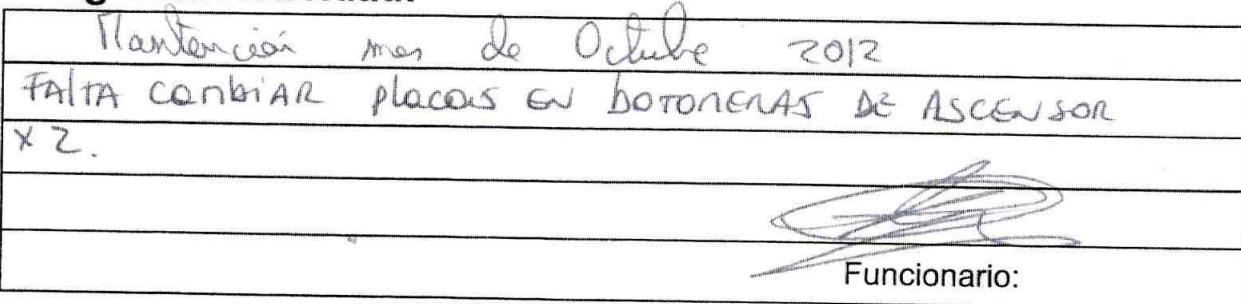 Mantención mes de Octubre 2012
FALTA CAMBIAR placas EN BOTONERAS DE ASCENSOR
X 2.
Funcionario: